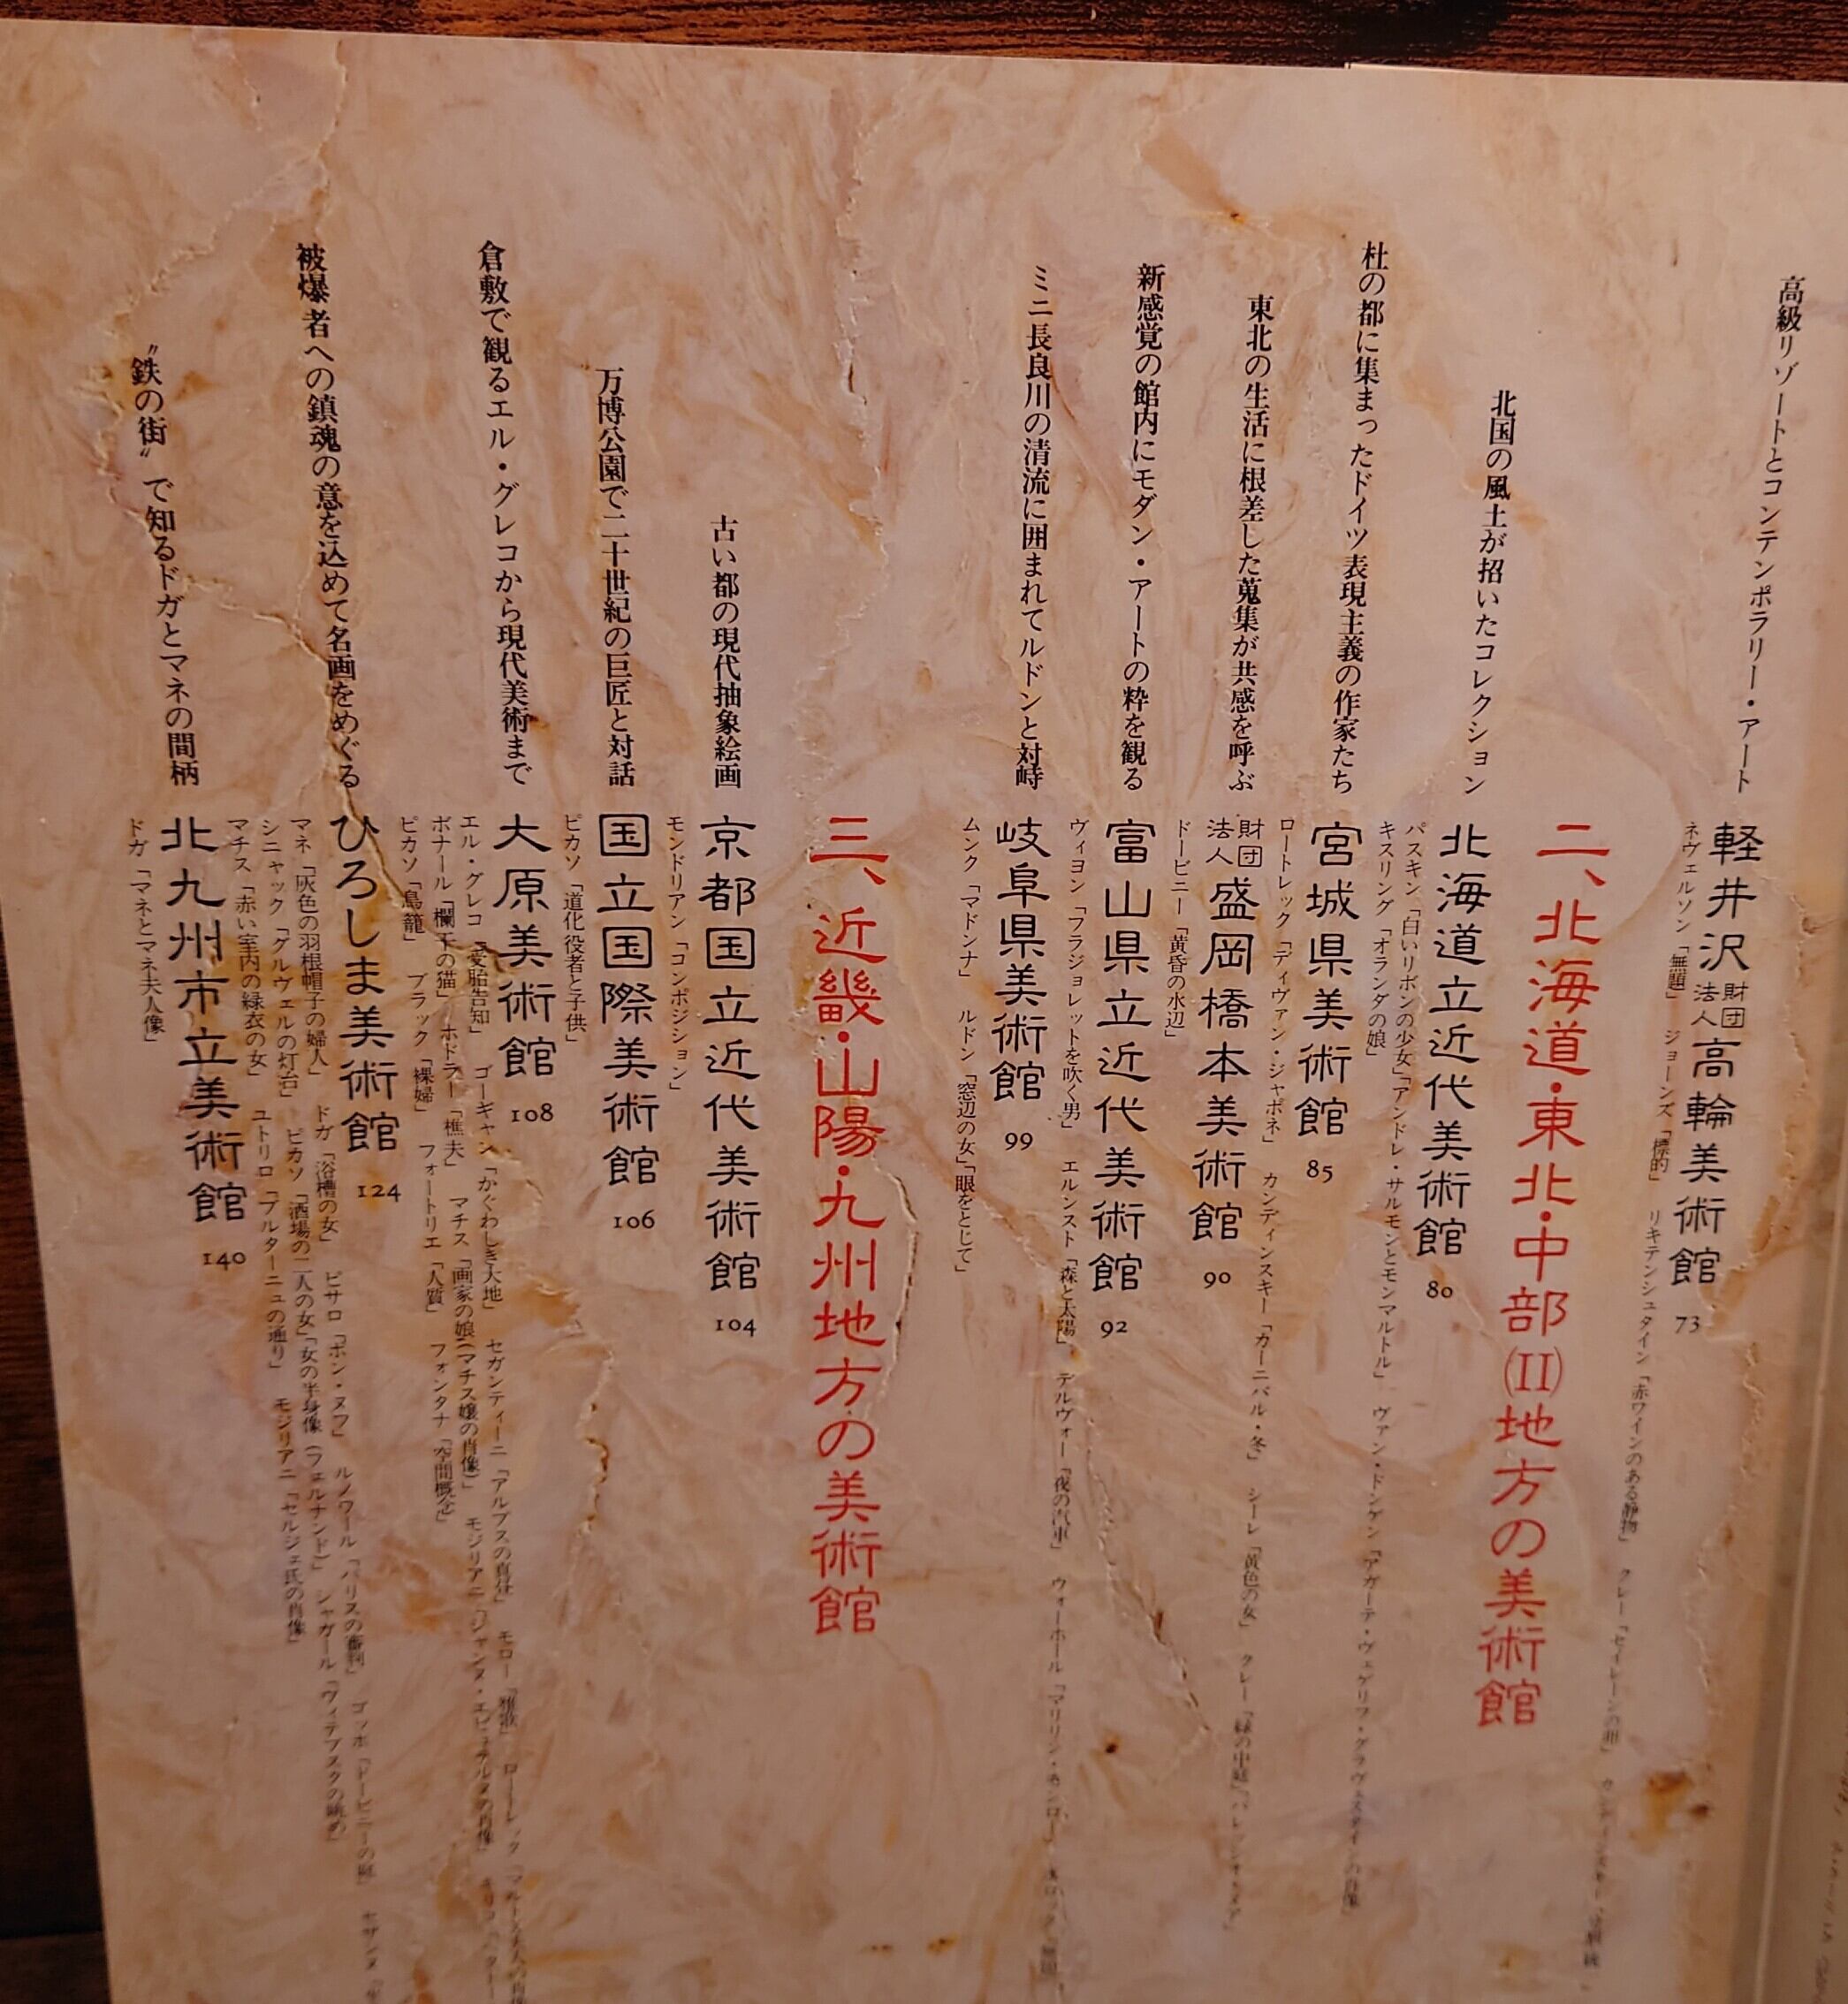 高級リゾートとコンテンポラリー・アート
軽井沢財団法人高輪美術館 73
ネヴェルソン「無題」 ジョーンズ「標的」 リキテンシュタイン「赤ワインのある静物」 クレー「セイレーンの卵」
二、北海道・東北・中部(II)地方の美術館
北国の風土が招いたコレクション
北海道立近代美術館 80
パスキン「白いリボンの少女」「アンドレ・サルモンとモンマルトル」 ヴァン・ドンゲン「アガーテ・ヴェゲリフ・グラヴェスタインの肖像」
キスリング「オランダの娘」
杜の都に集まったドイツ表現主義の作家たち
宮城県美術館 85
ロートレック「ディヴァン・ジャポネ」 カンディンスキー「カーニバル・冬」 シーレ「黄色の女」 クレー「緑の中庭」
東北の生活に根差した蒐集が共感を呼ぶ
財団法人盛岡橋本美術館 90
ドービニー「黄昏の水辺」
新感覚の館内にモダン・アートの粋を観る
富山県立近代美術館 92
ヴィヨン「フラジョレットを吹く男」 エルンスト「森と太陽」 デルヴォー「夜の汽車」 ウォーホール「マリリン・モンロー」
ミニ長良川の清流に囲まれてルドンと対峙
岐阜県美術館 99
ムンク「マドンナ」 ルドン「窓辺の女」「眼をとじて」
三、近畿・山陽・九州地方の美術館
古い都の現代抽象絵画
京都国立近代美術館 104
モンドリアン「コンポジション」
万博公園で二十世紀の巨匠と対話
国立国際美術館 106
ピカソ「道化役者と子供」
倉敷で観るエル・グレコから現代美術まで
大原美術館 108
エル・グレコ「受胎告知」 ゴーギャン「かぐわしき大地」 セガンティーニ「アルプスの真昼」 モロー「雅歌」
ボナール「欄干の猫」 ホドラー「樵夫」 マチス「画家の娘(マチス嬢の肖像)」 モジリアニ「ジャンヌ・エビュテルヌの肖像」
ピカソ「鳥籠」 ブラック「裸婦」 フォートリエ「人質」 フォンタナ「空間概念」
被爆者への鎮魂の意を込めて名画をめぐる
ひろしま美術館 124
マネ「灰色の羽根帽子の婦人」 ドガ「浴槽の女」 ピサロ「ポン・ヌフ」 ルノワール「パリスの審判」 ゴッホ「ドービニーの庭」 セザンヌ
シニャック「グルヴェルの灯台」 ピカソ「酒場の二人の女」「女の半身像(フェルナンド)」 シャガール「ヴィテブスクの眺め」
マチス「赤い室内の緑衣の女」 ユトリロ「ブルターニュの通り」 モジリアニ「セルジェ氏の肖像」
〝鉄の街〟で知るドガとマネの間柄
北九州市立美術館 140
ドガ「マネとマネ夫人像」